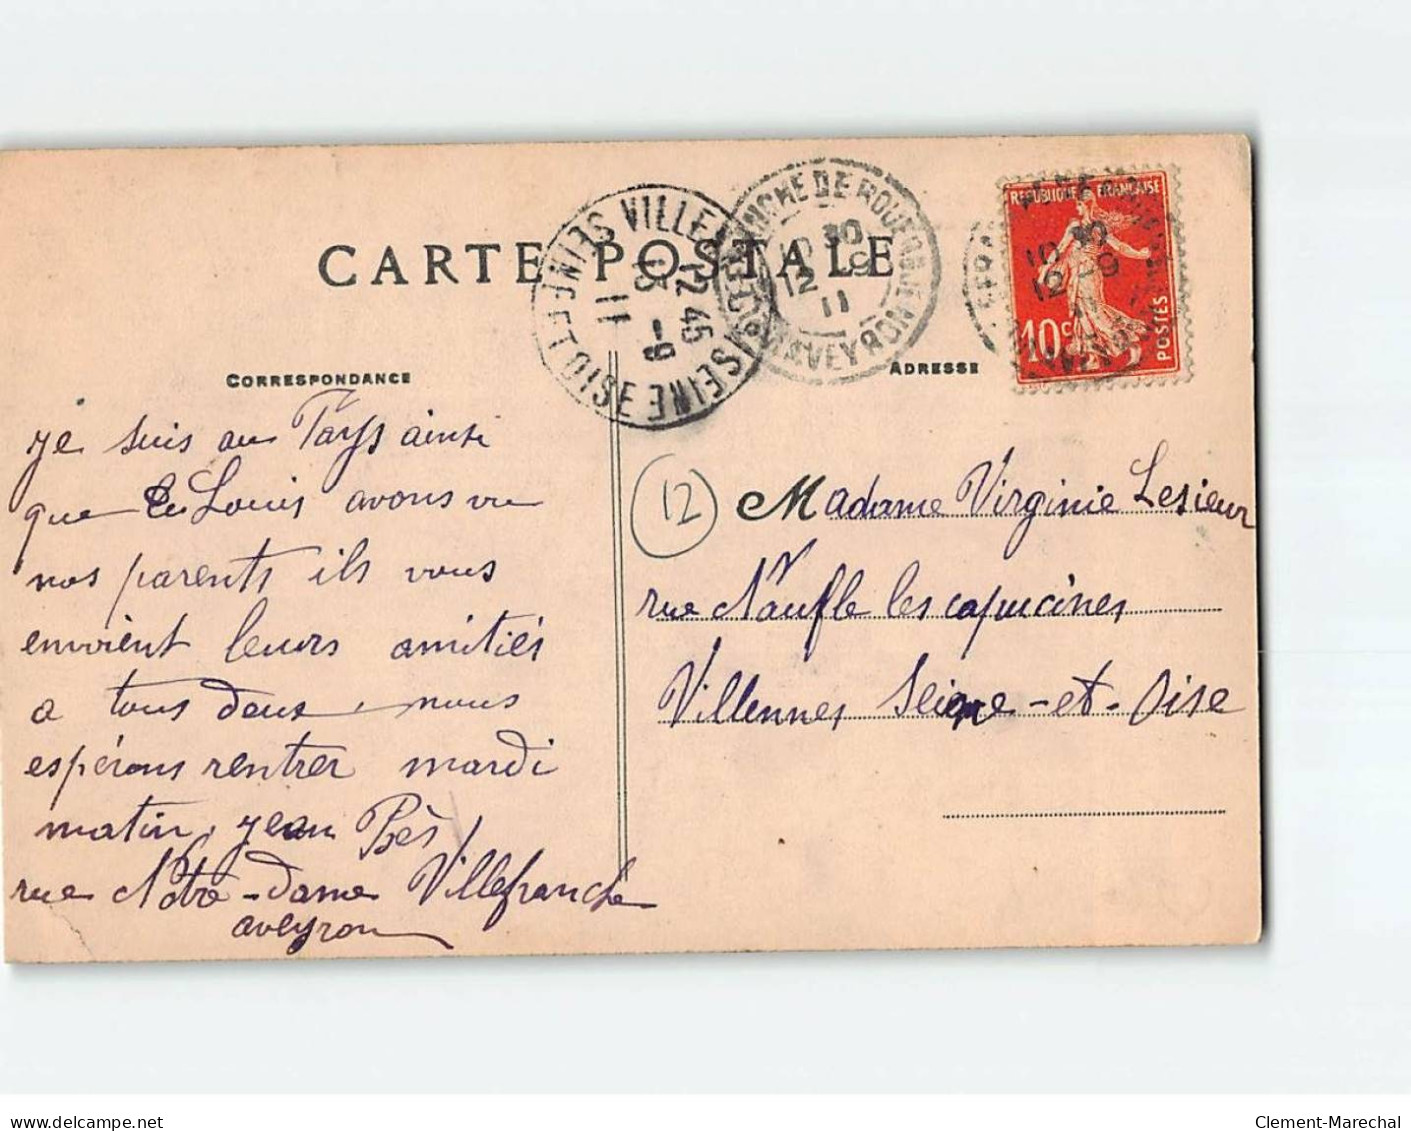 CARTE POSTALE
CORRESPONDANCE
ADRESSE
VILLENNES SUR SEINE SEINE-ET-OISE
12 45
13 -9
11
VILLEFRANCHE DE ROUERGUE AVEYRON
10 30
12 -9
11
REPUBLIQUE FRANÇAISE
10 30
12 -9
10c
POSTES
je suis au Pays ainsi
que Louis avons vu
nos parents ils vous
envoient leurs amitiés
a tous deux, nous
espérons rentrer mardi
matin, jean Bès
rue Notre-dame Villefranche
aveyron
12
Madame Virginie Lesieur
rue Naufle les capucines
Villennes Seine-et-Oise
delcampe.net
Clement-Marechal